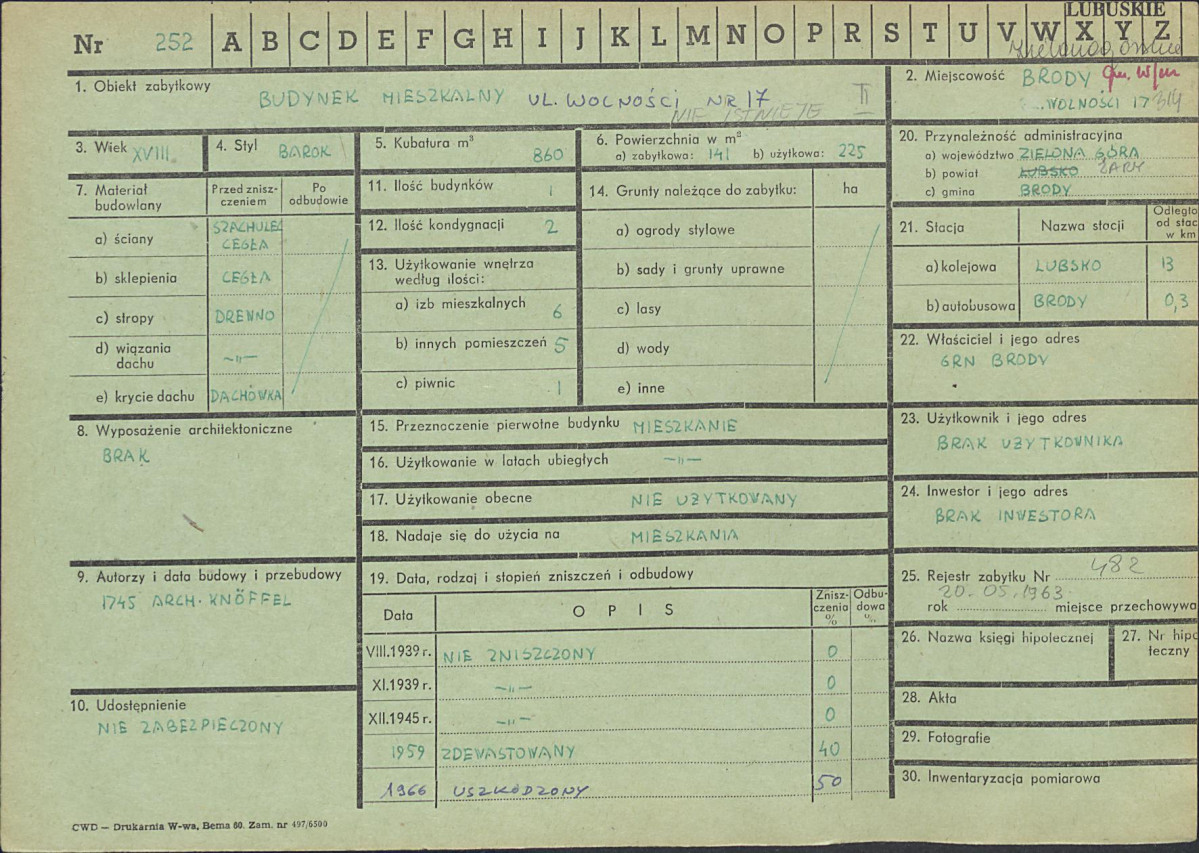 LUBUSKIE
Nr 252 A B C D E F G H I J K L M N O P R S T U V W X Y Z
1. Obiekt zabytkowy
BUDYNEK MIESZKALNY UL. WOLNOŚCI NR 17 II
NIE ISTNIEJE
2. Miejscowość BRODY
WOLNOŚCI 17
3. Wiek XVIII
4. Styl BAROK
5. Kubatura m³
860
6. Powierzchnia w m²
a) zabytkowa: 141 b) użytkowa: 225
20. Przynależność administracyjna
a) województwo ZIELONA GÓRA
b) powiat LUBSKO ŻARY
c) gmina BRODY
7. Materiał budowlany
Przed zniszczeniem
Po odbudowie
a) ściany SZACHULEC CEGŁA
b) sklepienia CEGŁA
c) stropy DREWNO
d) wiązania dachu —"—
e) krycie dachu DACHÓWKA
11. Ilość budynków 1
12. Ilość kondygnacji 2
13. Użytkowanie wnętrza
według ilości:
a) izb mieszkalnych 6
b) innych pomieszczeń 5
c) piwnic 1
14. Grunty należące do zabytku: ha
a) ogrody stylowe
b) sady i grunty uprawne
c) lasy
d) wody
e) inne
21. Stacja Nazwa stacji Odległo
od stac
w km
a) kolejowa LUBSKO 13
b) autobusowa BRODY 0,3
22. Właściciel i jego adres
GRN BRODY
8. Wyposażenie architektoniczne
BRAK
15. Przeznaczenie pierwotne budynku MIESZKANIE
16. Użytkowanie w latach ubiegłych —"—
17. Użytkowanie obecne NIE UŻYTKOWANY
18. Nadaje się do użycia na MIESZKANIA
23. Użytkownik i jego adres
BRAK UŻYTKOWNIKA
24. Inwestor i jego adres
BRAK INWESTORA
9. Autorzy i data budowy i przebudowy
1745 ARCH. KNÖFFEL
10. Udostępnienie
NIE ZABEZPIECZONY
19. Data, rodzaj i stopień zniszczeń i odbudowy
Data OPIS Zniszczenia % Odbudowa %
VIII.1939 r. NIE ZNISZCZONY 0
XI.1939 r. —"— 0
XII.1945 r. —"— 0
1959 ZDEWASTOWANY 40
1966 USZKODZONY 50
25. Rejestr zabytku Nr 482
20.05.1963
rok miejsce przechowywa
26. Nazwa księgi hipotecznej
27. Nr hipo
teczny
28. Akta
29. Fotografie
30. Inwentaryzacja pomiarowa
CWD — Drukarnia W-wa, Bema 60. Zam. nr 497/6500